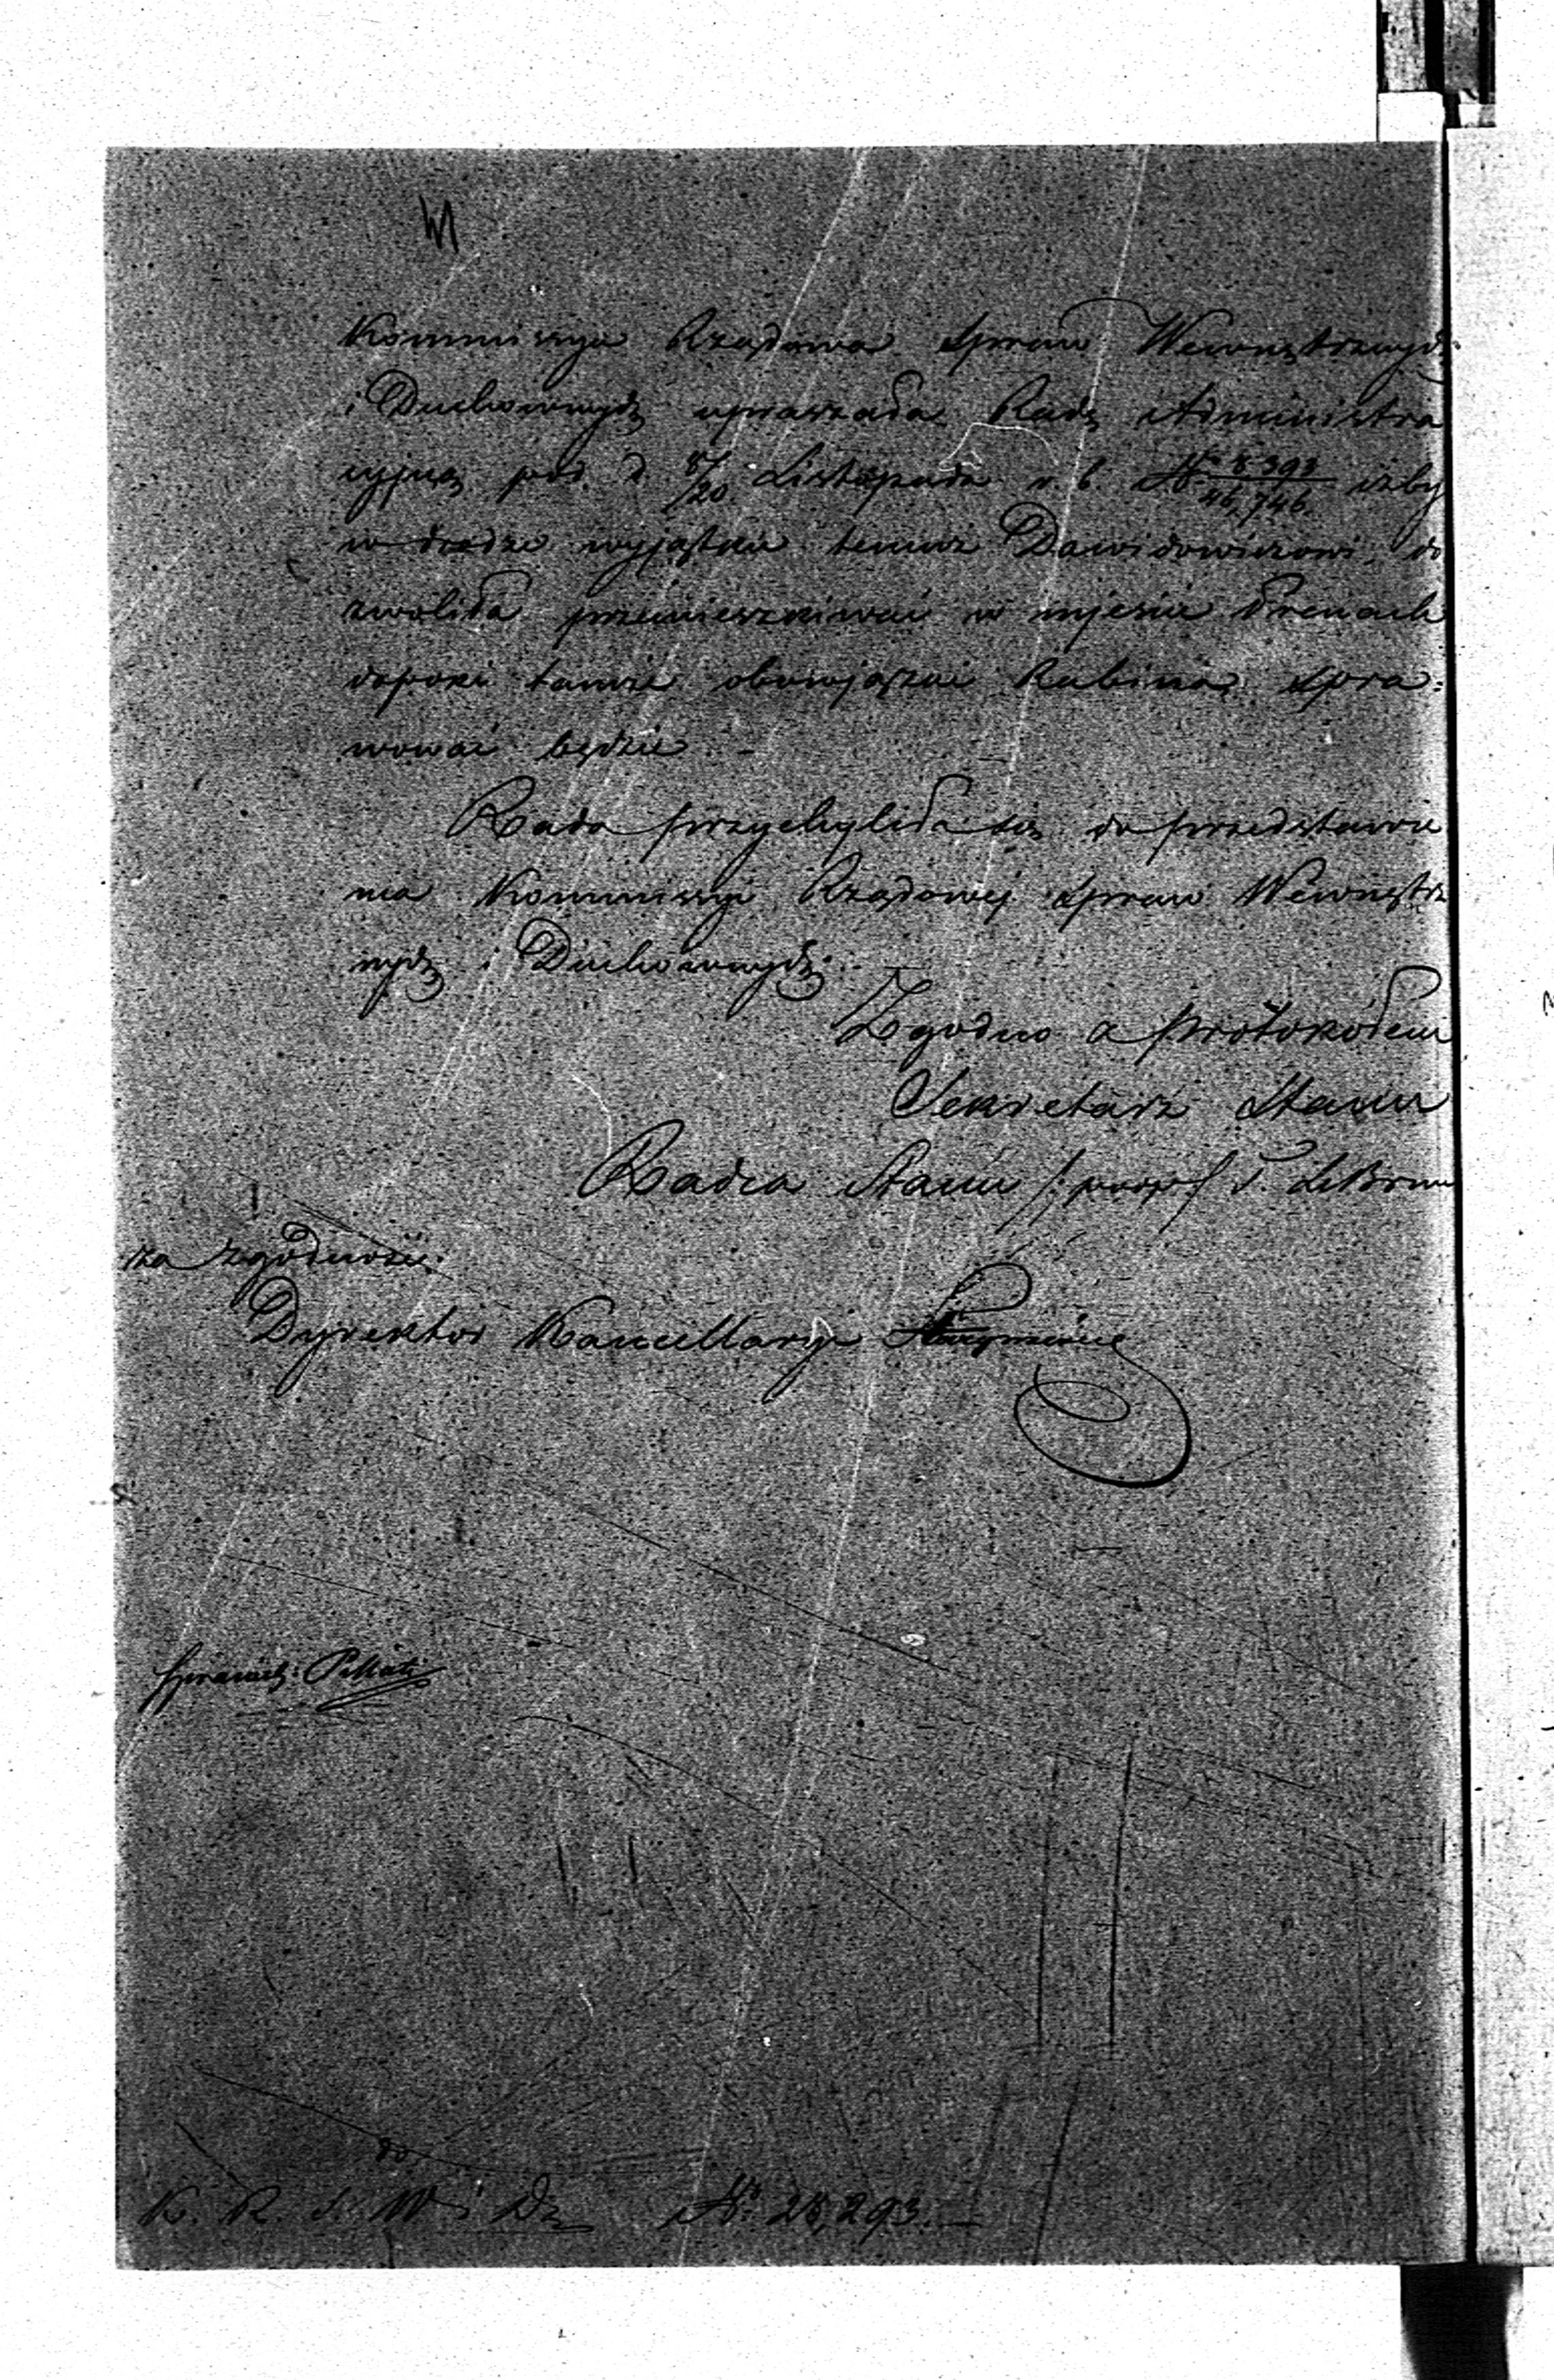 Kommissya Rządowa Spraw Wewnętrznych
i Duchownych upraszała Radę Administra
cyjną pod d. 8/20 Listopada r. b. No 8393/46,746. iżby
w drodze wyjątku temuż Dawidowiczowi do
zwoliła przemieszkiwać w mjeście
dopoki tamże obowjązki Rabina spra:
wować będzie. -
Rada przychyliła się do przedstawie
nia Kommissyi Rządowej Spraw Wewnętrz
nych i Duchownych. -
Zgodno z protokołem
Sekretarz Stanu
Radca Stanu /: podp: / T. LeBrun
za zgodność:
Dyrektor Kancellaryi
do
K. R. S. W i D. No 28,293. -